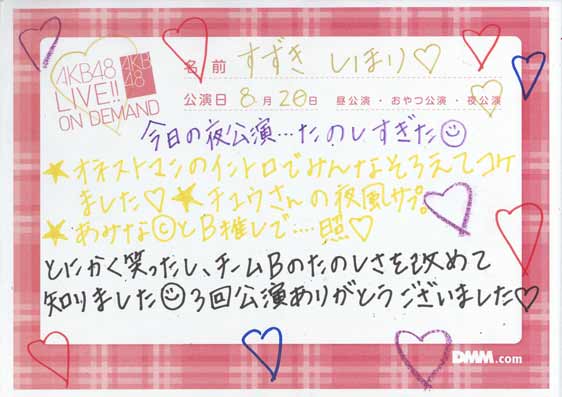 AKB48
LIVE!!
ON DEMAND
AKB
48
名前 すずき しほり♡
公演日 8月20日 昼公演・おやつ公演・夜公演
今日の夜公演…たのしすぎた☺
★オネストマンのイントロでみんなそろえてコケ
ました♡ ★チュウさんの夜風サプ。
★あみなⓒとB推しで…照♡
とにかく笑ったし、チームBのたのしさを改めて
知りました☺3回公演ありがとうございました♡
DMM.com